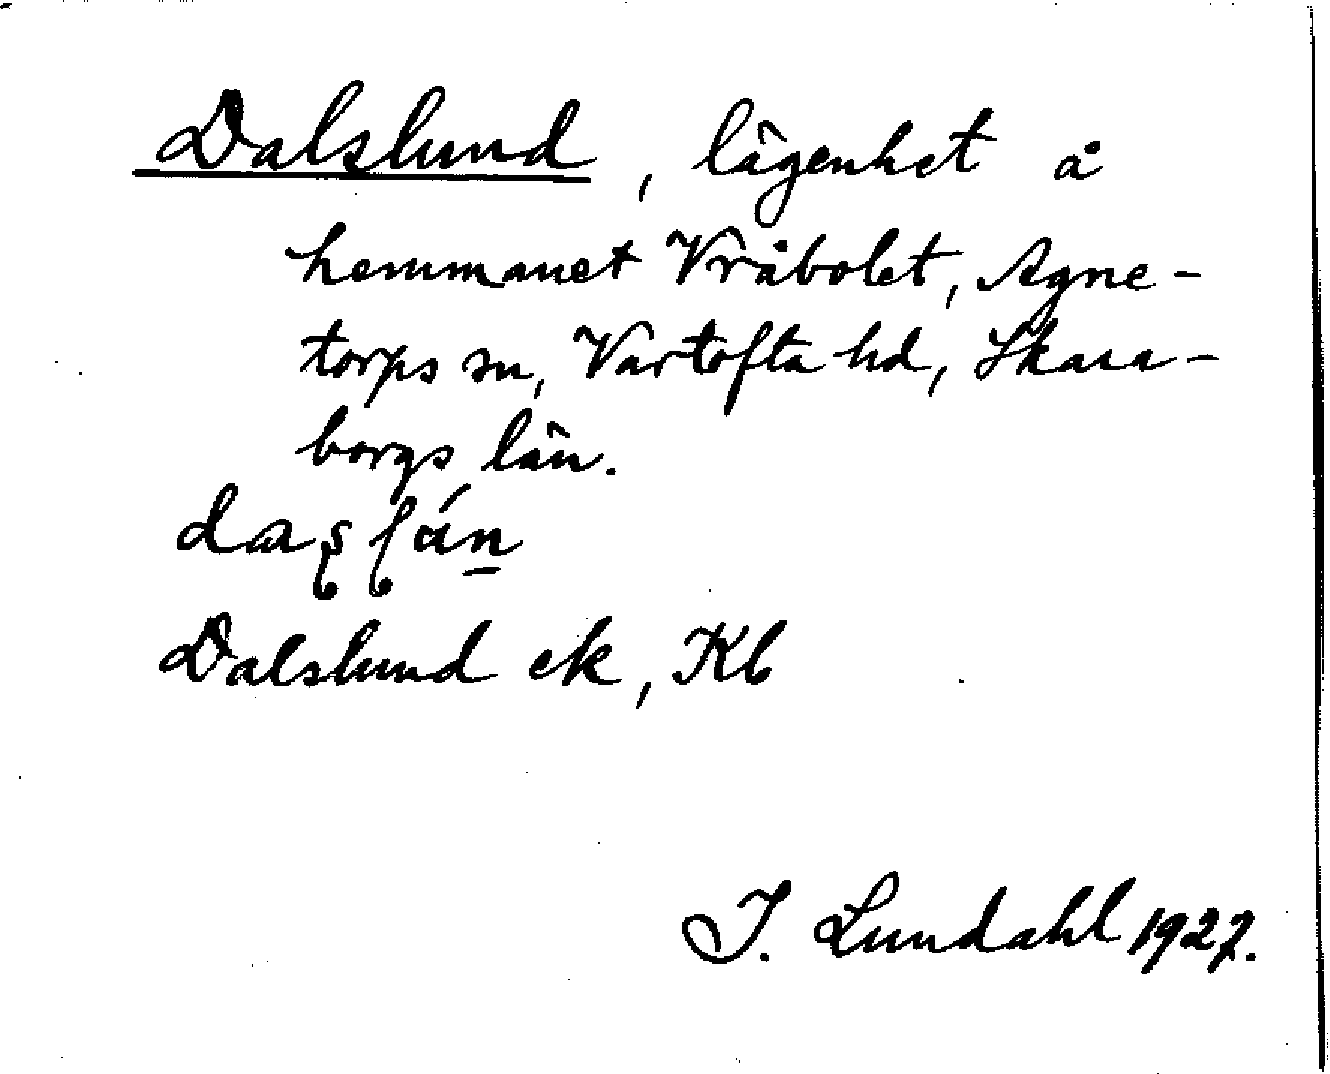 Dalslund, lägenhet å
hemmanet Vråbolet, Agne-
torps sn, Vartofta hd, Skara-
borgs län.
Dalslund ek, Kb
I. Lundahl 1927.